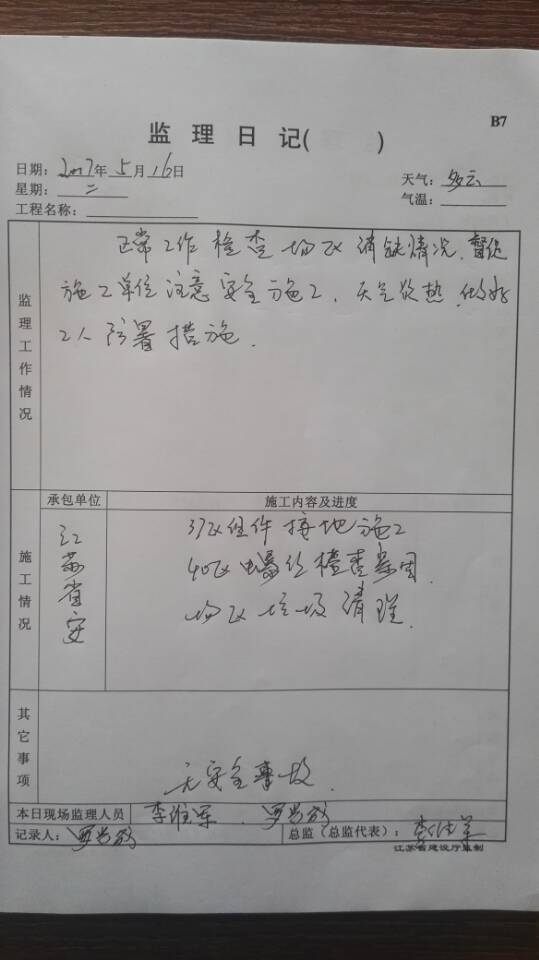 B7
监 理 日 记( )
日期：2017年 5月 16日
天气：多云
星期：二
气温：
工程名称：
监理工作情况
正常工作 检查 场区 消缺情况，督促
施工单位注意安全施工，天气炎热，做好
工人防暑措施.
施工情况
承包单位
施工内容及进度
江苏省安
37区组件接地施工
40区螺丝检查紧固.
场区垃圾清理.
其它事项
无安全事故.
本日现场监理人员
记录人：
总监（总监代表）：
江苏省建设厅监制